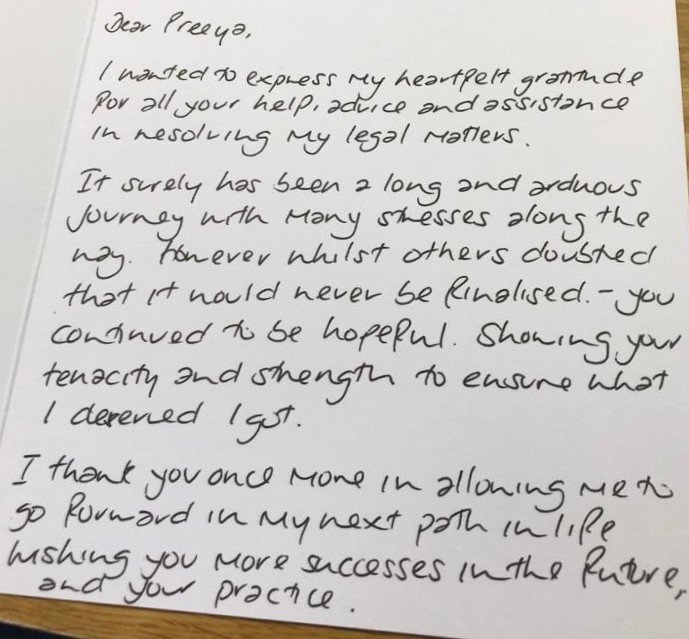 Dear Preeya,
I wanted to express my heartfelt gratitude
for all your help, advice and assistance
in resolving my legal matters.
It surely has been a long and arduous
journey with many stresses along the
way. However whilst others doubted
that it would never be finalised. - you
continued to be hopeful. Showing your
tenacity and strength to ensure what
I deserved I got.
I thank you once more in allowing me to
go forward in my next path in life
wishing you more successes in the future,
and your practice.